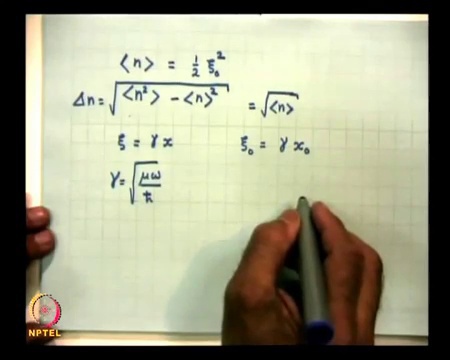 ⟨n⟩ = 1/2 ξ₀²
Δn = √(⟨n²⟩ − ⟨n⟩²) = √⟨n⟩
ξ = γ x ξ₀ = γ x₀
γ = √(μω/ℏ)
NPTEL